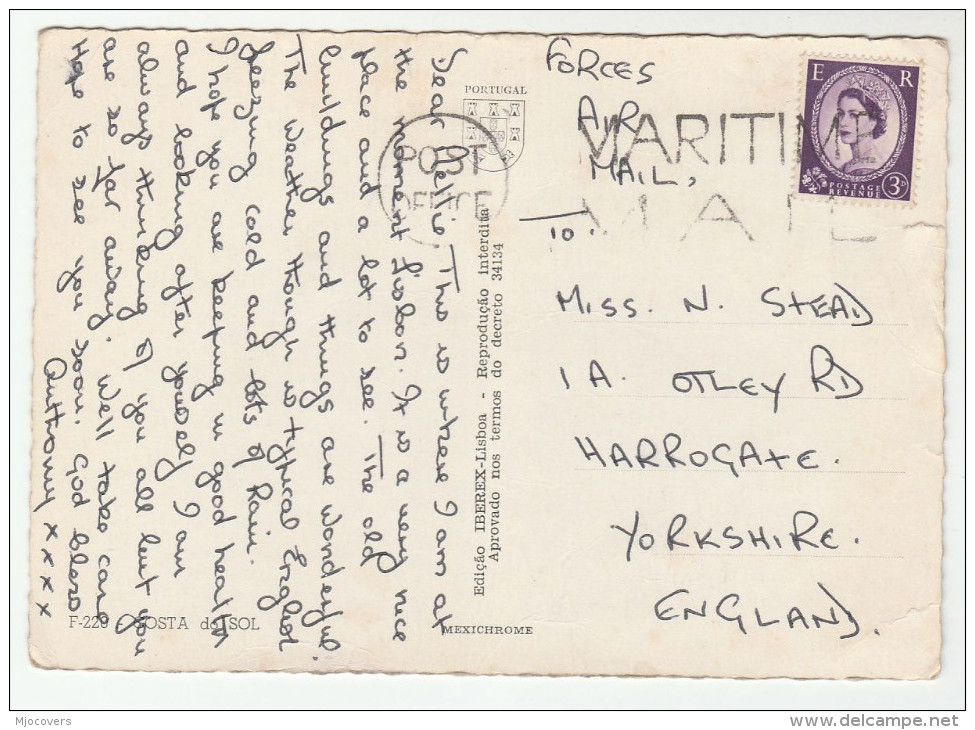 Dear Nellie, This is where I am at
the moment Lisbon. It is a very nice
place and a lot to see. The old
buildings and things are wonderful.
The weather though is typical English
freezing cold and lots of Rain.
I hope you are keeping in good health
and looking after yourself I am
always thinking of you all but you
are so far away. Well take care
Hope to see you soon. God bless
Anthony xxxx
F-229 - COSTA do SOL
PORTUGAL
Edição IBEREX-Lisboa - Reprodução interdita
Aprovado nos termos do decreto 34134
MEXICHROME
POST
OFFICE
MARITIME
MAIL
E R
POSTAGE
REVENUE
3D
FORCES
AIR
MAIL,
TO..
MISS. N. STEAD
1A. OTLEY RD
HARROGATE.
YORKSHIRE.
ENGLAND.
Mjocovers
www.delcampe.net